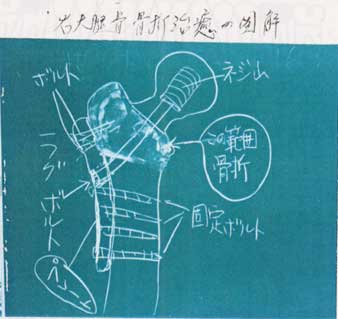 右大腿骨骨折治癒の図解
ボルト
ネジ山
この範囲
骨折
ラグボルト
固定ボルト
プレート